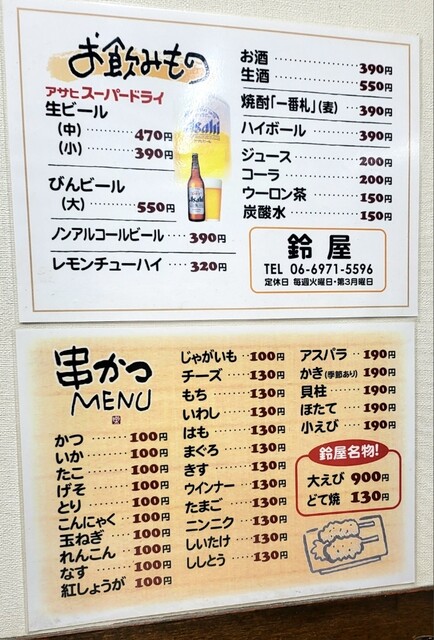 お飲みもの
アサヒ スーパードライ
生ビール
(中)……470円
(小)……390円
びんビール
(大)……550円
ノンアルコールビール……390円
レモンチューハイ……320円
Asahi
お酒……390円
生酒……550円
焼酎「一番札」(麦)……390円
ハイボール……390円
ジュース……200円
コーラ……200円
ウーロン茶……150円
炭酸水……150円
鈴屋
TEL 06-6971-5596
定休日 毎週火曜日・第3月曜日
串かつ
MENU
かつ……100円
いか……100円
たこ……100円
げそ……100円
とり……100円
こんにゃく……100円
玉ねぎ……100円
れんこん……100円
なす……100円
紅しょうが……100円
じゃがいも……100円
チーズ……130円
もち……130円
いわし……130円
はも……130円
まぐろ……130円
きす……130円
ウインナー……130円
たまご……130円
ニンニク……130円
しいたけ……130円
ししとう……130円
アスパラ……190円
かき(季節あり)……190円
貝柱……190円
ほたて……190円
小えび……190円
鈴屋名物!
大えび 900円
どて焼 130円